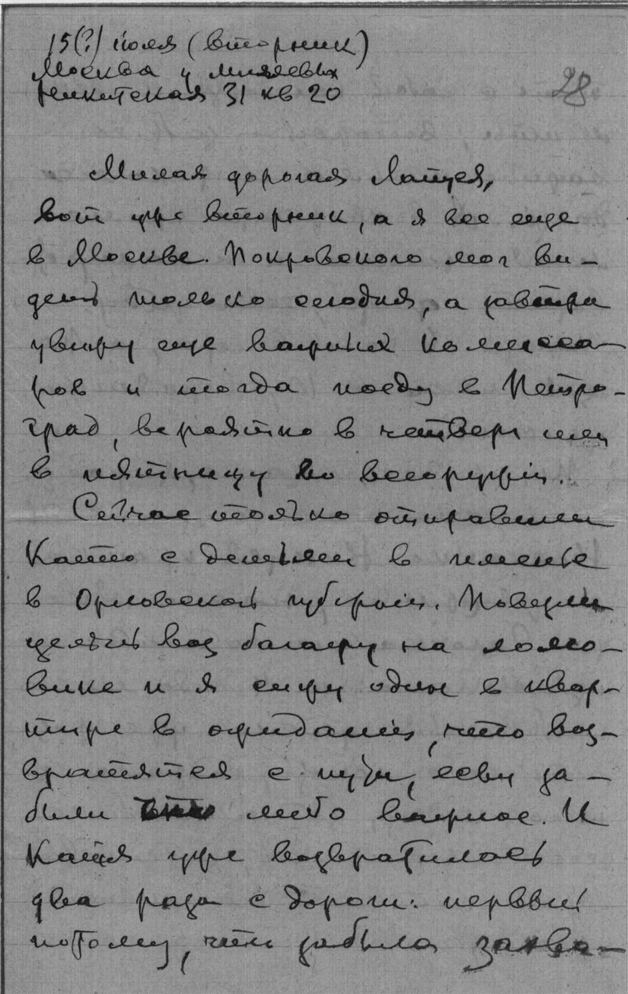 15(?) июля (вторник)
Москва у Миляевых
Никитская 31 кв 20
28
Милая дорогая Лапуся,
вот уже вторник, а я все еще
в Москве. Покровского мог ви-
деть только сегодня, а завтра
увижу еще важных комисса-
ров и тогда поеду в Петро-
град, вероятно в четверг или
в пятницу во всеоружии.
Сейчас только отправили
Катю с детьми в именье
в Орловской губернии. Повезли
целый воз багажу на ломо-
вике и я сижу один в квар-
тире в ожидании, что воз-
вратятся с пути, если за-
были что либо важное. И
Катя уже возвратилась
два раза с дороги: первый
потому, что забыла захва-